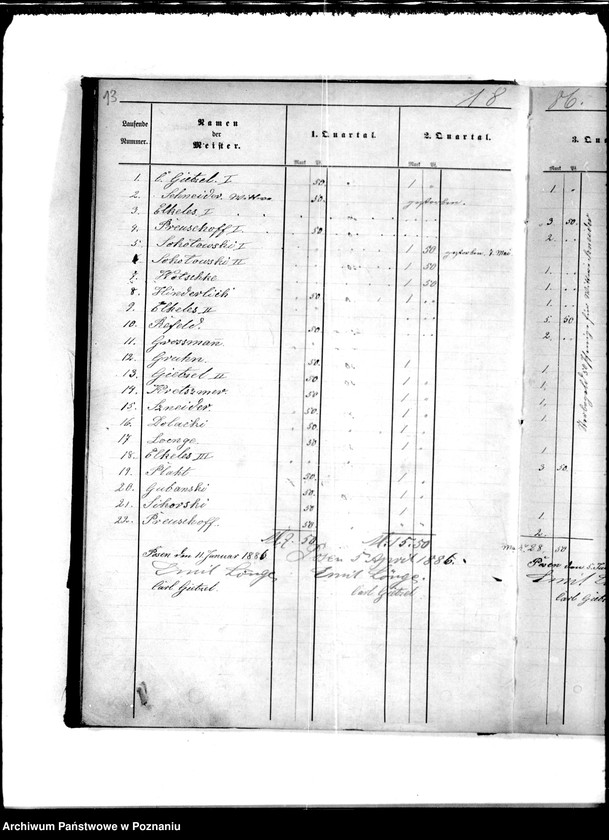 13
18
86.
Laufende Nummer.
Namen der Meister.
1. Quartal.
2. Quartal.
3. Qua
Mark Pf.
Mark Pf.
Mark Pf.
1. C. Gietzel I 50 1 1
2. Schneider Wittwe 50 gestorben
3. Elkeles I 3 50
4. Preuschoff I 50 2
5. Sokołowski I 1 50 gestorben d. Mai
6. Sokołowski II 1 50 1
7. Kötschke 1 50 1
8. Hinderlich 50 1 1
9. Elkeles II 5 50
10. Refeld. 50 2
11. Grossman
12. Gruhn. 50 1 1
13. Gietzel II 50 1 1
14. Kretszmer. 50 1 1
15. Szneider. 50 1 1
16. Zelacki 50 1
17 Loenge. 50 1 1
18. Elkeles III 3 50
19. Plaht 50 1
20. Gubanski 50 1
21. Sikorski 50 1 1
22. Preuschoff. 50 2
M. 7. 50 M. 15.50 28. 50
Posen den 11 Januar 1886
Posen 5 April 1886.
Posen den 5 Ju
Emil Lönge
Emil Lönge.
Emil
Carl Gietzel.
Carl Gietzel
Carl Gietz
Archiwum Państwowe w Poznaniu